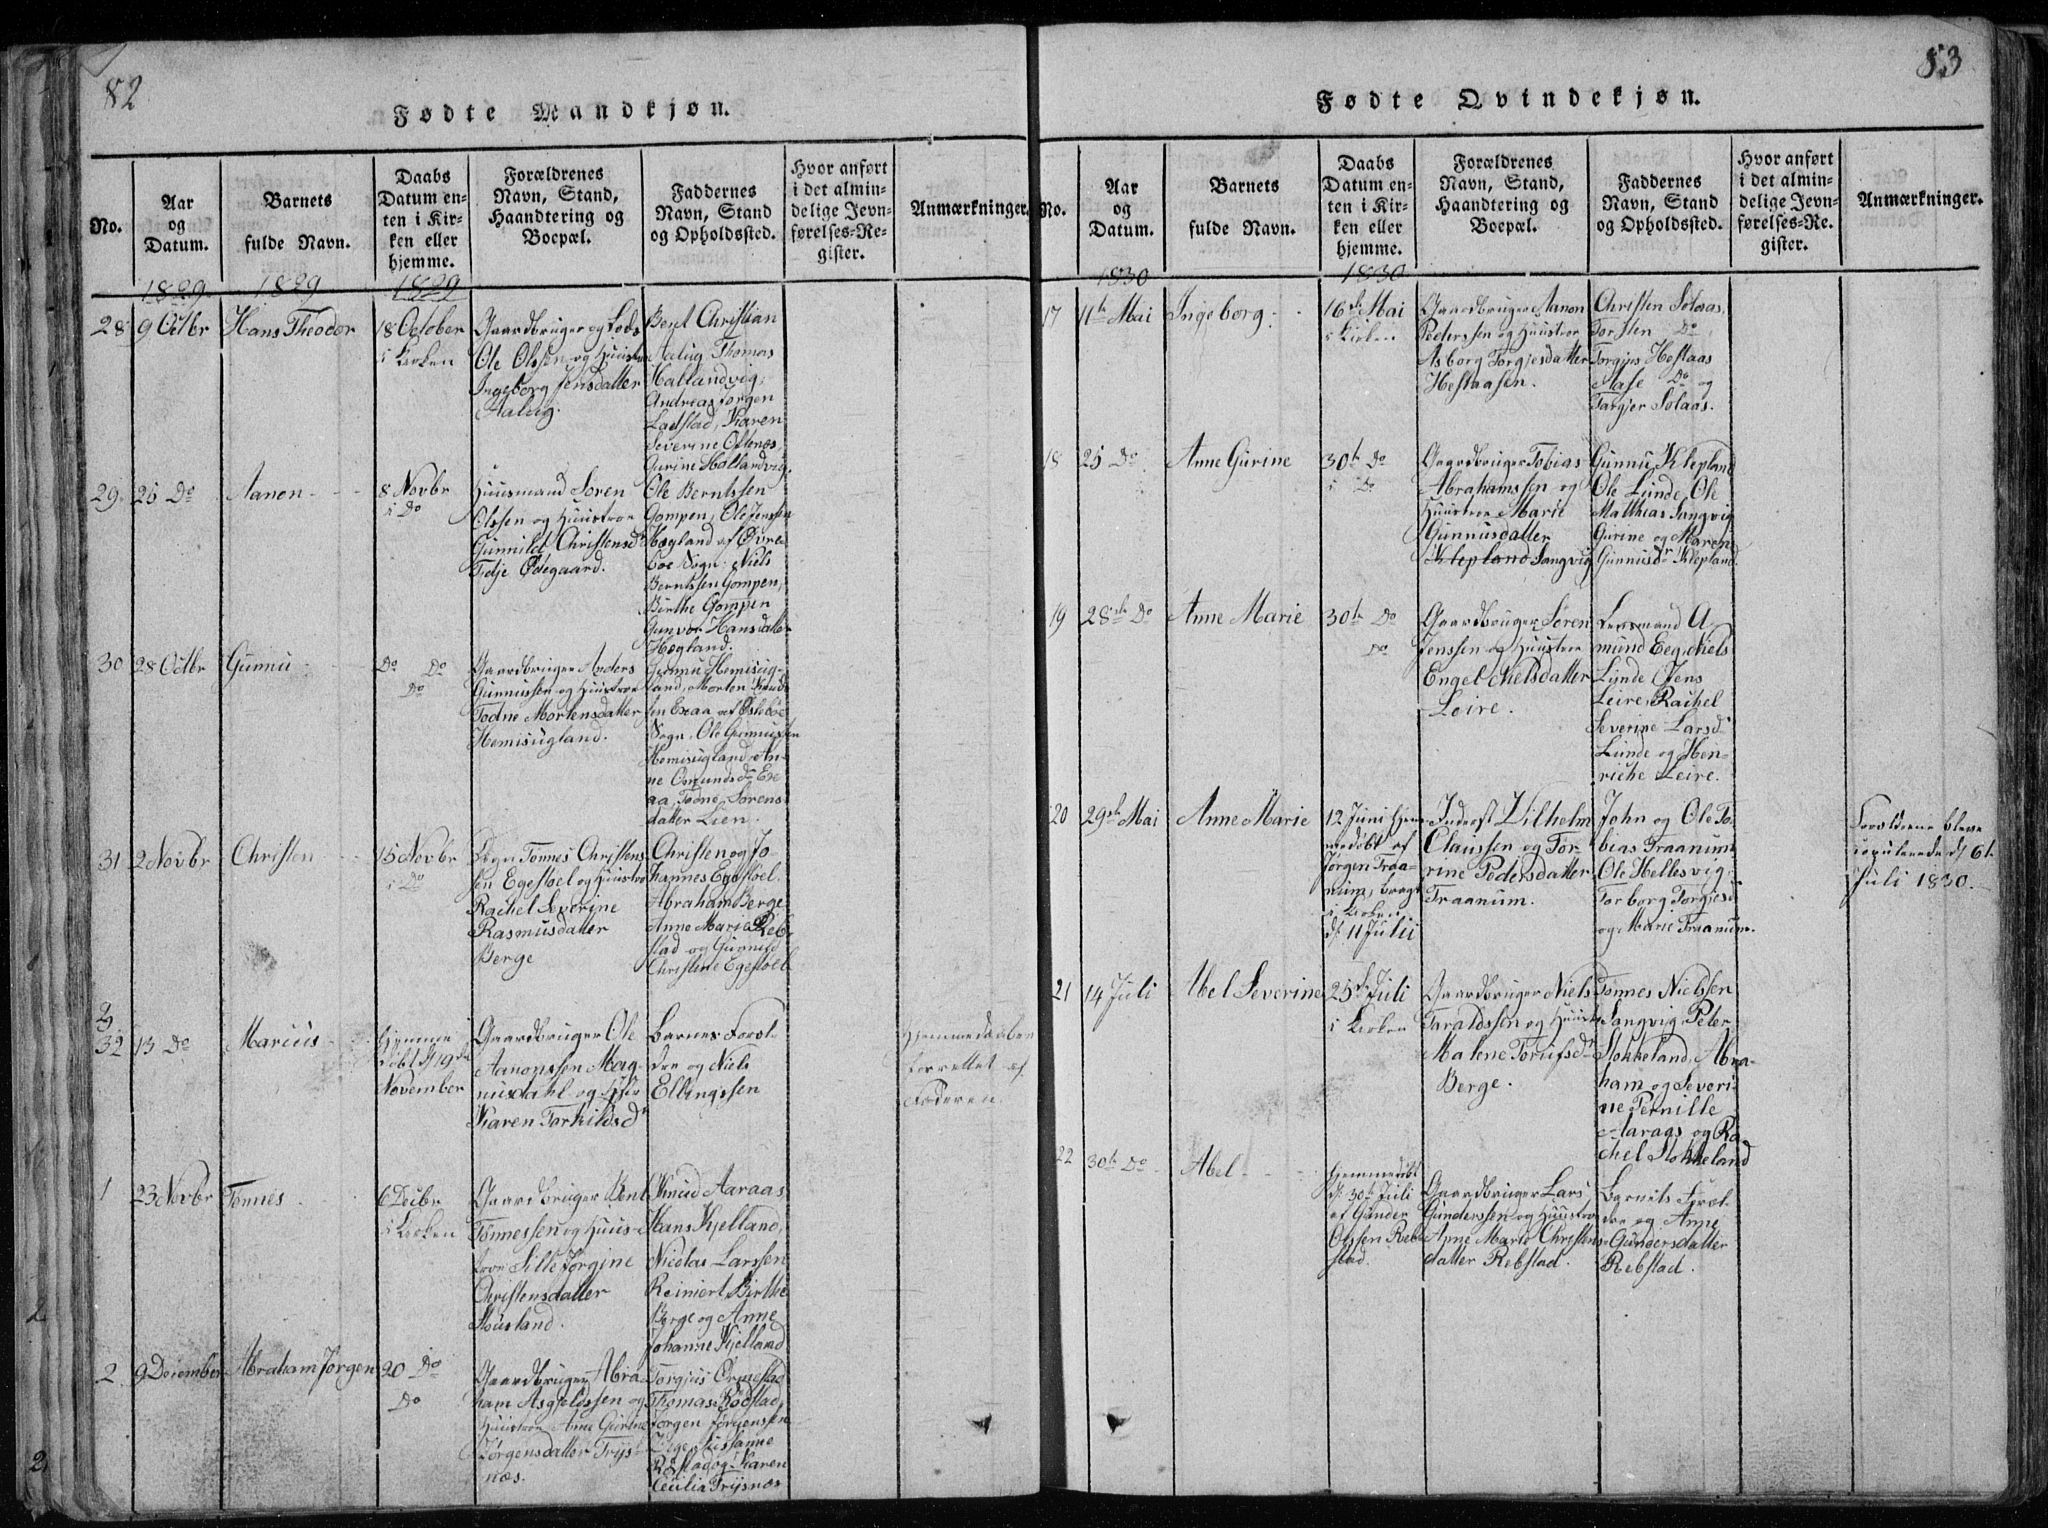 82
Fødte Mandkjøn.
No.
Aar
og
Datum.
Barnets
fulde Navn.
Daabs
Datum en-
ten i Kir-
ken eller
hjemme.
Forældrenes
Navn, Stand,
Haandtering og
Boepæl.
Faddernes
Navn, Stand
og Opholdssted.
Hvor anført
i det almin-
delige Jevn-
førelses-Re-
gister.
Anmærkninger.
1829. 1829 1829
28
9 Octbr
Hans Theodor
18 October
i Kirken
Gaardbruger og Lods
Ole Olssen og Huustroe
Ingeborg Jensdatter
Aalug.
Bent Christian
Aalug, Thomas
Hallandvig,
Andreas Jørgen
Ladstad, Karen
Severine Ostenes,
Gurine Hollandvig.
29.
25 Do
Aanon
8 Novbr
i Do
Huusmand Søren
Olssen og Huustroe
Gunnild Christensdr
Tidje Ødegaard.
Ole Berntssen
Gompen, Ole Jenssen
Høgland af Øvre
boe Sogn, Niels
Berntssen Gompen,
Birthe Gompen
Gunvor Hansdatter
Høgland.
30
28 Octbr
Gunnu
Do Do
Do
Gaardbruger Anders
Gunnussen og Huustroe
Todne Mortensdatter
Homisugland.
Gunnu Homisug-
land, Morten Knud-
sen Exaa af Oslebøe
Sogn, Ole Gunnussen
Homisugland, An-
ne Osmundsdr Exe-
aa, Todne Sørens-
datter Lien.
31
2 Novbr
Christen
15 Novbr
i Do
Tønnes Christens
sen Egestoel og Huustroe
Rachel Severine
Rasmusdatter
Berge
Christen og Jo-
hannes Egestoel.
Abraham Berge
Anne Marie Reb-
stad og Gunnild
Christine Egestoel.
32
13 Do
Marcius
Hjemme
døbt d. 19de
November
Gaardbruger Ole
Aanonssen Mag-
nusdahl og Hustr
Karen Torkildsdr
Barnets Foræl-
dre og Niels
Ellingssen
Hjemmedaaben
forrettet af
Faderen.
1
23 Novbr
Tønnes
6 Decbr
i Kirken
Gaardbruger Bent
Tønnessen og Huus-
troe Sille Jørgine
Christensdatter
Stousland.
Knud Aaraas
Hans Kjelland,
Nicolai Larssen
Reiniert, Birthe
Berge og Anne
Johanne Kjelland
2
9 December
Abraham Jørgen
20 Do
Do
Gaardbruger Abra-
ham Asgieldssen og
Huustroe Anne Gurine
Jørgensdatter Trys-
næs.
Torgjus Ormestad
Thomas Rødstad,
Jørgen Jørgenssen
Sussanne
Karen
Cecilia Trysnæs
83
Fødte Qvindekjøn.
No.
Aar
og
Datum.
Barnets
fulde Navn.
Daabs
Datum en-
ten i Kir-
ken eller
hjemme.
Forældrenes
Navn, Stand,
Haandtering og
Boepæl.
Faddernes
Navn, Stand
og Opholdssted.
Hvor anført
i det almin-
delige Jevn-
førelses-Re.
gister.
Anmærkninger.
1830 1830
17
11te Mai
Ingeborg
16de Mai
i Kirken
Gaardbruger Aanon
Pederssen og Huustroe
Asborg Torgjesdatter
Hestaasen.
Christen Solaas,
Torsten Do
Torgjus Hestaas
Aase Do og
Targjer Solaas.
18
25 Do
Anne Gurine
30te Do
i Do
Gaardbruger Tobias
Abrahamssen og
Huustroe Marie
Gunnusdatter
Klepland Langvig
Gunnu Klepland
Ole Lunde, Ole
Matthias Langvig
Gurine og Maren
Gunnusdr Klepland.
19
28de Do
Anne Marie
30te Do
Do
Gaardbruger Søren
Jenssen og Huustroe
Engel Nielsdatter
Leire.
Lensmand A-
mund Eeg, Niels
Lunde, Jens
Leire, Rachel
Severine Larsdr
Lunde og Hen-
riche Leire.
20
29de Mai
Anne Marie
12 Juni hjem-
medøbt af
Jørgen Traa-
num, bragt
i Kirken
d. 11 Julii
Inderst Vilhelm
Claussen og Tor-
rine Pedersdatter
Traanum.
John og Ole To-
bias Traanum
Ole Hellesvig
Torborg Torgjesdr
og Marie Traanum.
Forældrene bleve
copulerede d. 6te
Juli 1830.
21
14 Juli
Abel Severine
25de Juli
i Kirken
Gaardbruger Niels
Taraldssen og Huustr
Malene Torufsdr
Berge.
Tønnes Nielssen
Langvig, Peter
Stokkeland, Abra-
ham og Severi-
ne Pernille
Aarags og Ra-
chel Stokkeland
22
30te Do
Abel
Hjemmedøbt
d. 30te Juli
af Gunder
Olssen Reb-
stad.
Gaardbruger Lars
Gunderssen og Huustroe
Anne Marie Christens-
datter Rebstad.
Barnets Foræl-
dre og Anne
Gundersdatter
Rebstad.